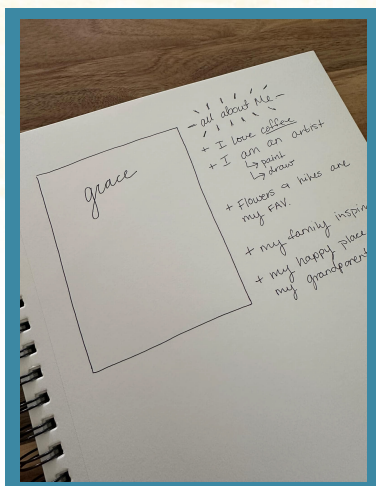 grace
- all about Me -
+ I love coffee
+ I am an artist
↳ paint
↳ draw
+ Flowers & hikes are
my FAV.
+ my family inspir
+ my happy place
my grandparent